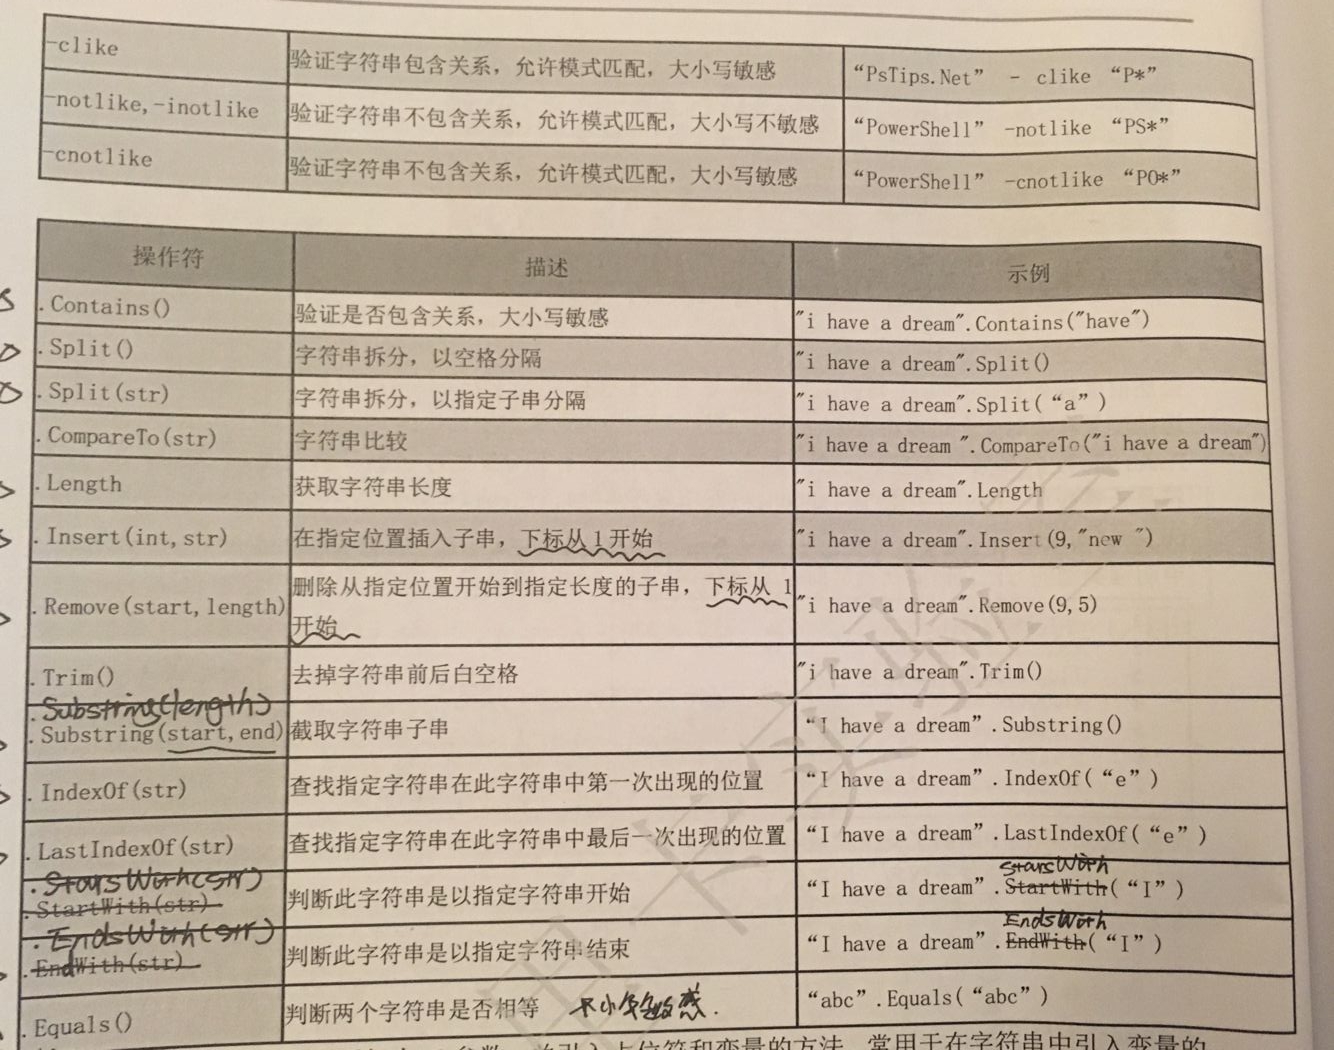 -clike 验证字符串包含关系，允许模式匹配，大小写敏感 “PsTips.Net” - clike “P*”
-notlike,-inotlike 验证字符串不包含关系，允许模式匹配，大小写不敏感 “PowerShell” -notlike “PS*”
-cnotlike 验证字符串不包含关系，允许模式匹配，大小写敏感 “PowerShell” -cnotlike “PO*”
操作符 描述 示例
.Contains() 验证是否包含关系，大小写敏感 "i have a dream".Contains("have")
.Split() 字符串拆分，以空格分隔 "i have a dream".Split()
.Split(str) 字符串拆分，以指定子串分隔 "i have a dream".Split(“a”)
.CompareTo(str) 字符串比较 "i have a dream ".CompareTo("i have a dream")
.Length 获取字符串长度 "i have a dream".Length
.Insert(int,str) 在指定位置插入子串，下标从1开始 "i have a dream".Insert(9,"new ")
.Remove(start,length) 删除从指定位置开始到指定长度的子串，下标从 1 "i have a dream".Remove(9,5)
开始
.Trim() 去掉字符串前后白空格 "i have a dream".Trim()
.Substring(length)
.Substring(start,end) 截取字符串子串 “I have a dream”.Substring()
.IndexOf(str) 查找指定字符串在此字符串中第一次出现的位置 “I have a dream”.IndexOf(“e”)
.LastIndexOf(str) 查找指定字符串在此字符串中最后一次出现的位置 “I have a dream”.LastIndexOf(“e”)
.StarsWith(str) StarsWith
.StartWith(str) 判断此字符串是以指定字符串开始 “I have a dream”.StartWith(“I”)
.EndsWith(str) EndsWith
.EndWith(str) 判断此字符串是以指定字符串结束 “I have a dream”.EndWith(“I”)
.Equals() 判断两个字符串是否相等 大小写敏感. “abc”.Equals(“abc”)